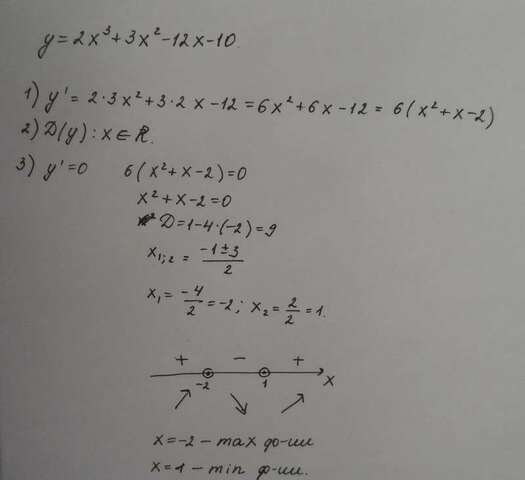 y = 2x³+3x²-12x-10.
1) y' = 2·3x²+3·2x-12 = 6x²+6x-12 = 6(x²+x-2)
2) D(y): x ∈ R.
3) y'=0 6(x²+x-2)=0
x²+x-2=0
D=1-4·(-2)=9
x₁;₂ = (-1±3)/2
x₁ = -4/2 = -2; x₂ = 2/2 = 1.
+ - +
-2 1 x
x=-2 - max ф-ии
x=1 - min ф-ии.